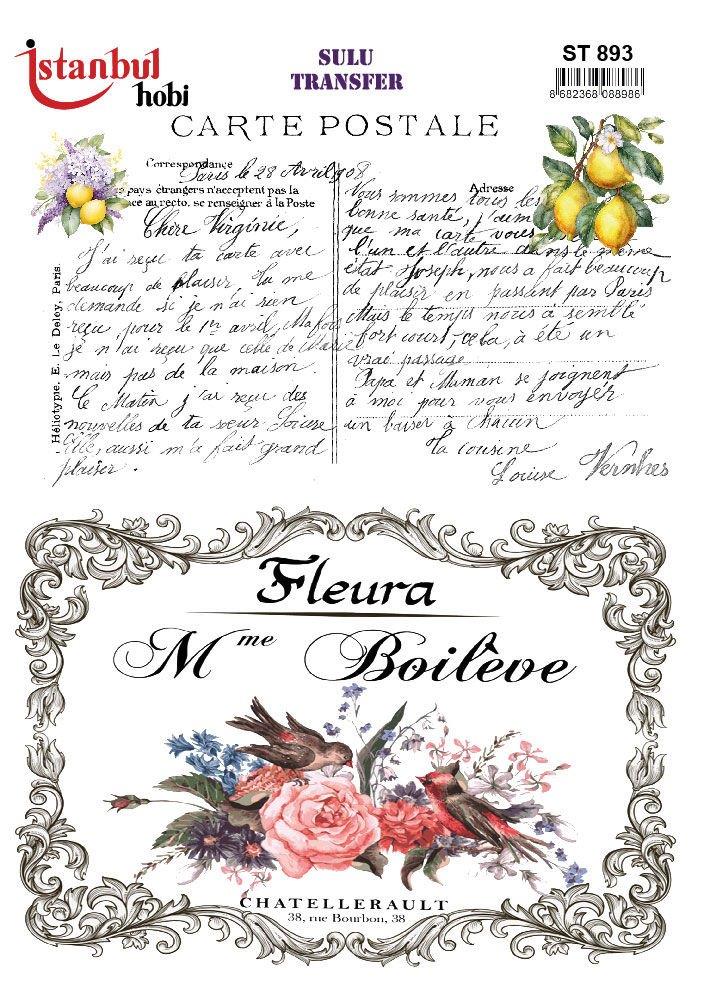 istanbul
hobi
SULU
TRANSFER
ST 893
8 682368 088986
CARTE POSTALE
Correspondance
Paris le 28 Avril 908
pays étrangers n'acceptent pas la
ce au recto. se renseigner à la Poste
Chère Virginie,
J'ai reçu ta carte avec
beaucoup de plaisir, Tu me
demande si je n'ai rien
reçu pour le 1er avril, Ma foi
je n'ai reçu que celle de Marie
mais pas de la maison.
Ce Matin j'ai reçu des
nouvelles de ta sœur Louise
Elle, aussi m'a fait grand
plaisir.
Héliotypie, E. Le Deloy, Paris.
Adresse
Nous sommes tous les
bonne santé, j'aim
que ma carte vous
l'un et l'autre dans le même
état Joseph, nous a fait beaucoup
de plaisir en passant par Paris
Mais le temps nous a semblé
fort court, cela, à été un
vrai passage
Papa et Maman se joignent
à moi pour vous envoyer
un baiser à chacun
Ta cousine
Louise Vernhes
Fleura
Mme Boilève
CHATELLERAULT
38, rue Bourbon, 38